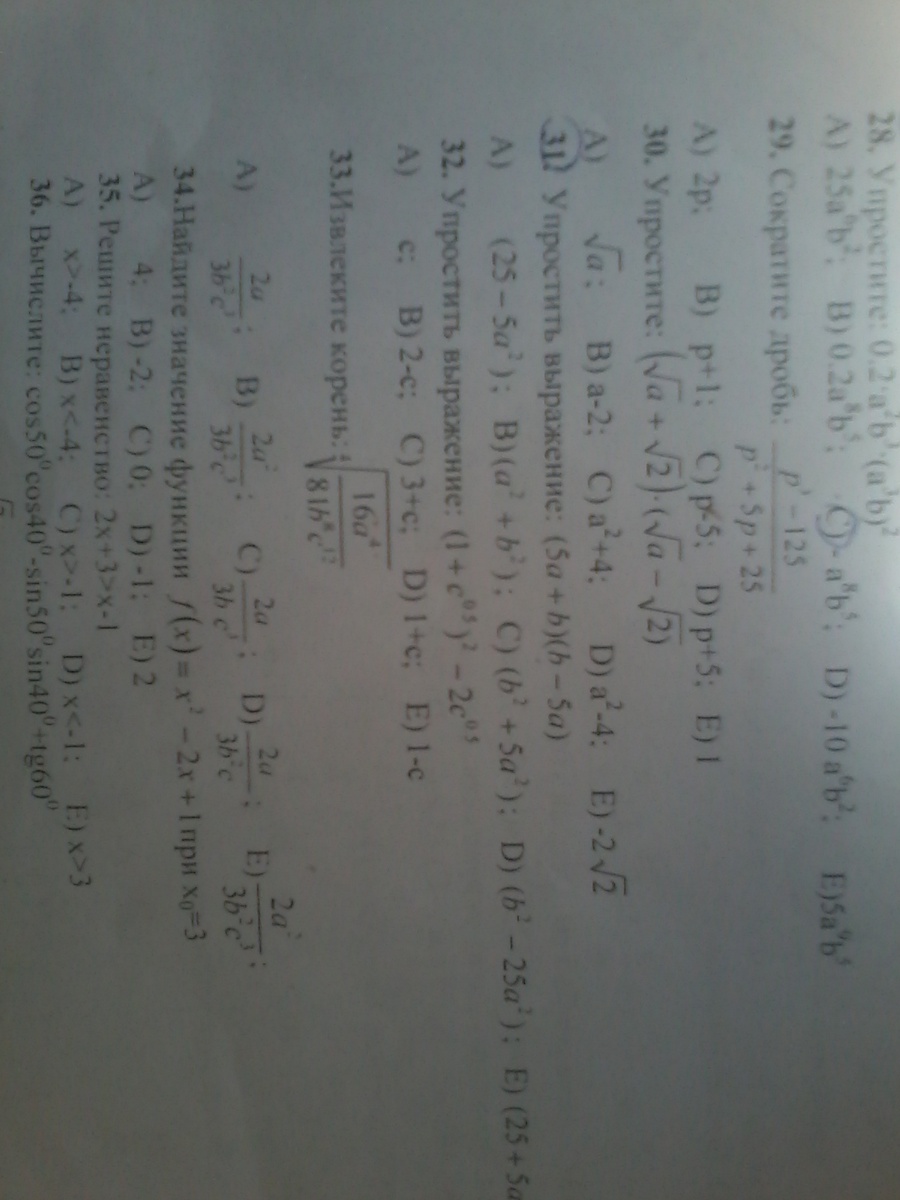 28. Упростите: 0.2·a²b³·(a³b)²
A) 25a⁶b²; B) 0.2a⁸b⁵; C) - a⁸b⁵; D) -10 a⁶b²; E)5a⁹b⁵
29. Сократите дробь: (p³ − 125)/(p² + 5p + 25)
A) 2p; B) p+1; C) p-5; D) p+5; E) 1
30. Упростите: (√a + √2)·(√a − √2)
A) √a; B) a-2; C) a²+4; D) a²-4; E) -2√2
31. Упростить выражение: (5a + b)(b − 5a)
A) (25 − 5a²); B) (a² + b²); C) (b² + 5a²); D) (b² − 25a²); E) (25 + 5a
32. Упростить выражение: (1 + c⁰·⁵)² − 2c⁰·⁵
A) c; B) 2-c; C) 3+c; D) 1+c; E) 1-c
33.Извлеките корень: ⁴√(16a⁴/81b⁸c¹²)
A) 2a/3b²c³; B) 2a²/3b²c³; C) 2a/3b c³; D) 2a/3b²c; E) 2a²/3b²c³;
34.Найдите значение функции f(x) = x² − 2x + 1 при x₀=3
A) 4; B) -2; C) 0; D) -1; E) 2
35. Решите неравенство: 2x+3>x-1
A) x>-4; B) x<-4; C) x>-1; D) x<-1; E) x>3
36. Вычислите: cos50⁰cos40⁰-sin50⁰sin40⁰+tg60⁰